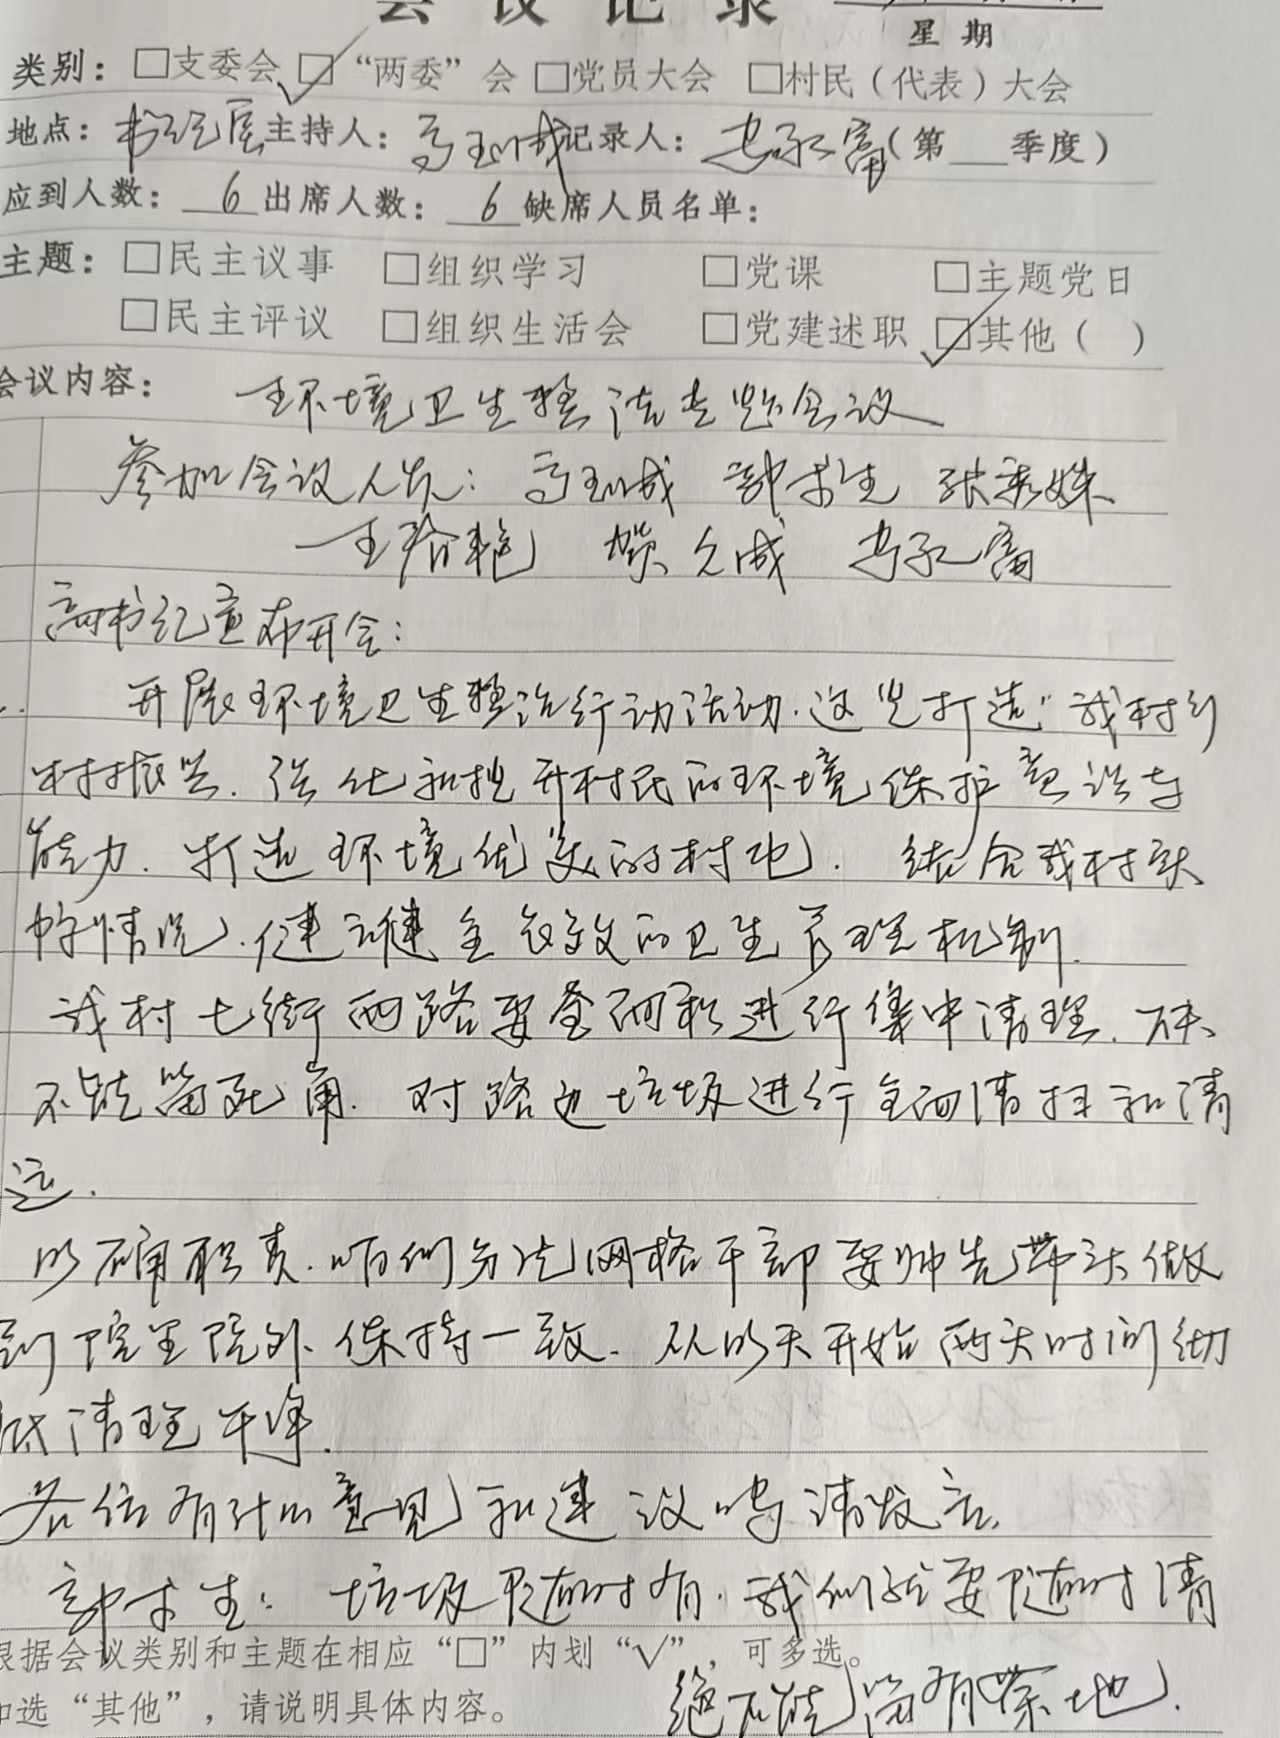 会议记录
星期
类别：□支委会 □“两委”会 □党员大会 □村民（代表）大会
地点：书记屋 主持人：高玉成 记录人：（第 季度）
应到人数：6 出席人数：6 缺席人员名单：
主题：□民主议事 □组织学习 □党课 □主题党日
□民主评议 □组织生活会 □党建述职 □其他（ ）
会议内容：环境卫生整治专题会议
参加会议人员：高玉成 张秀姝
王 艳 贺 成
高书记宣布开会：
开展环境卫生整治行动活动.这是打造"我村乡
村振兴.强化和提升村民的环境保护意识与
能力.打造环境优美的村地.结合我村实
际情况.健全有效的卫生管理机制.
我村七街两路要全面积进行集中清理.
不能留死角.对路边垃圾进行全面清扫和清
运.
明确职责.咱们分片网格干部要帅先带头做
到院里院外保持一致.从明天开始两天时间彻
底清理干净.
各位有什么意见和建议吗请发言.
生：垃圾随时有.我们就要随时清
根据会议类别和主题在相应“□”内划“√”，可多选。
如选“其他”，请说明具体内容。 绝不能留有 地.